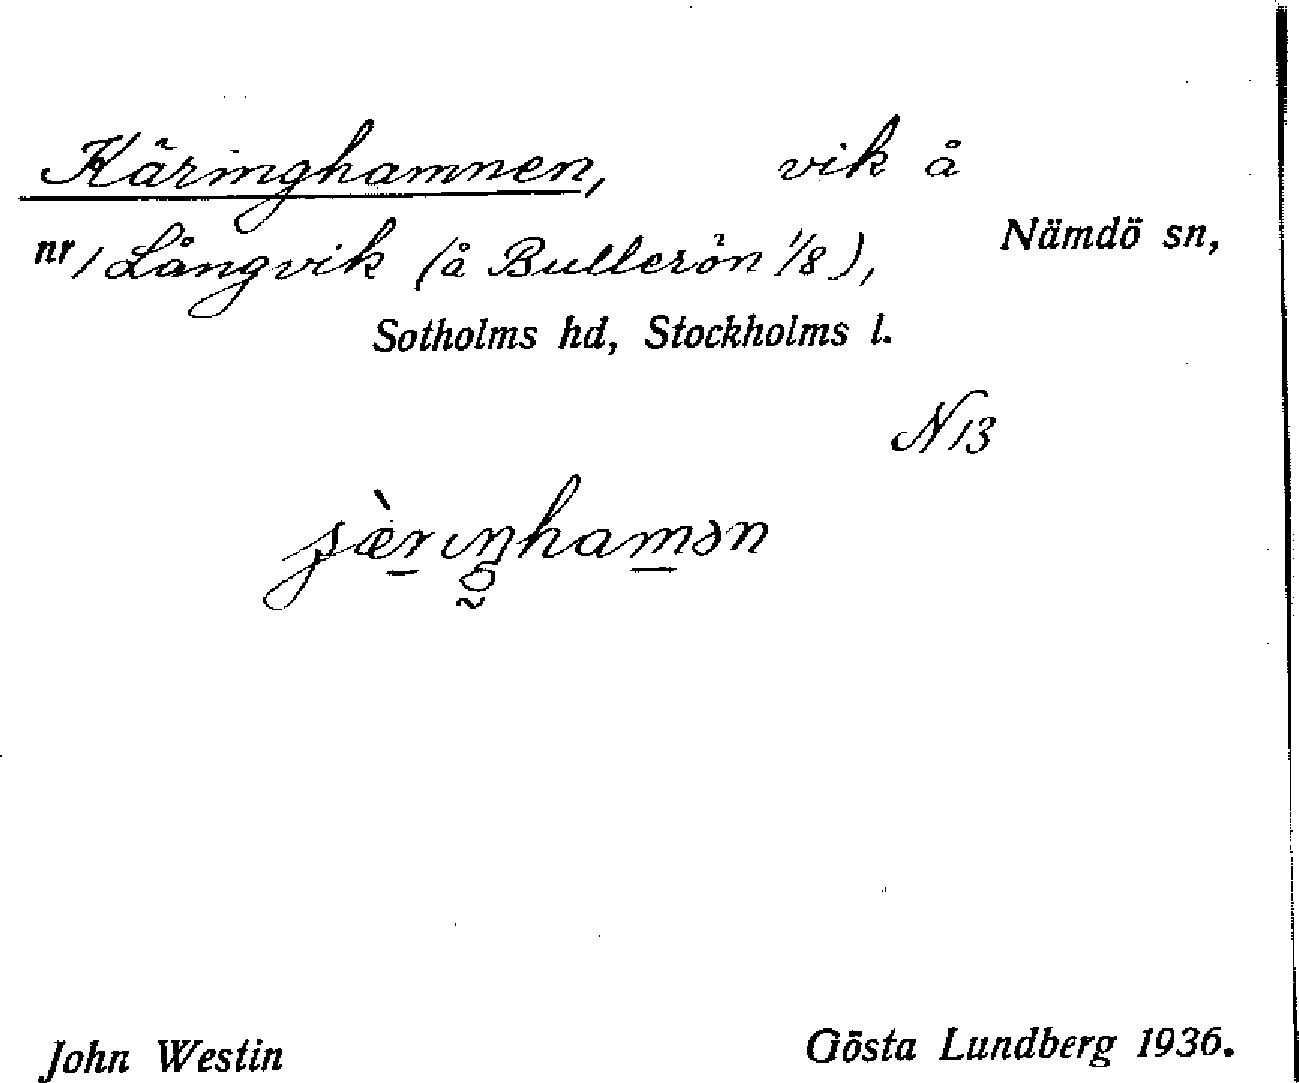 Käringhamnen, vik å
nr 1 Långvik (å Bullerön 1/8), Nämdö sn,
Sotholms hd, Stockholms l.
N 13
John Westin Gösta Lundberg 1936.